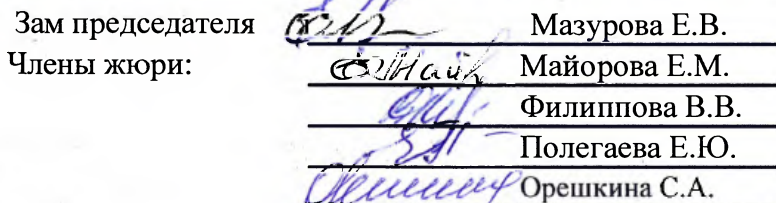 Зам председателя Мазурова Е.В.
Члены жюри: Майорова Е.М.
Филиппова В.В.
Полегаева Е.Ю.
Орешкина С.А.